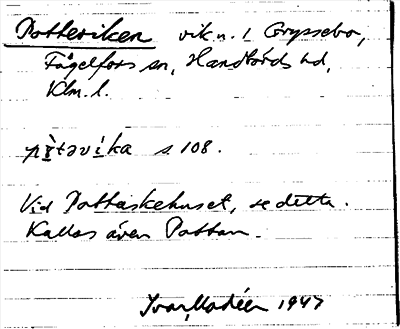 Potteviken vik n. l Gryssebo,
Fågelfors sn, Handbörds hd,
Klm. l.
s 108.
Vid Pottaskehuset, se detta.
Kallas även Pottan.
Ivar Modéer 1947